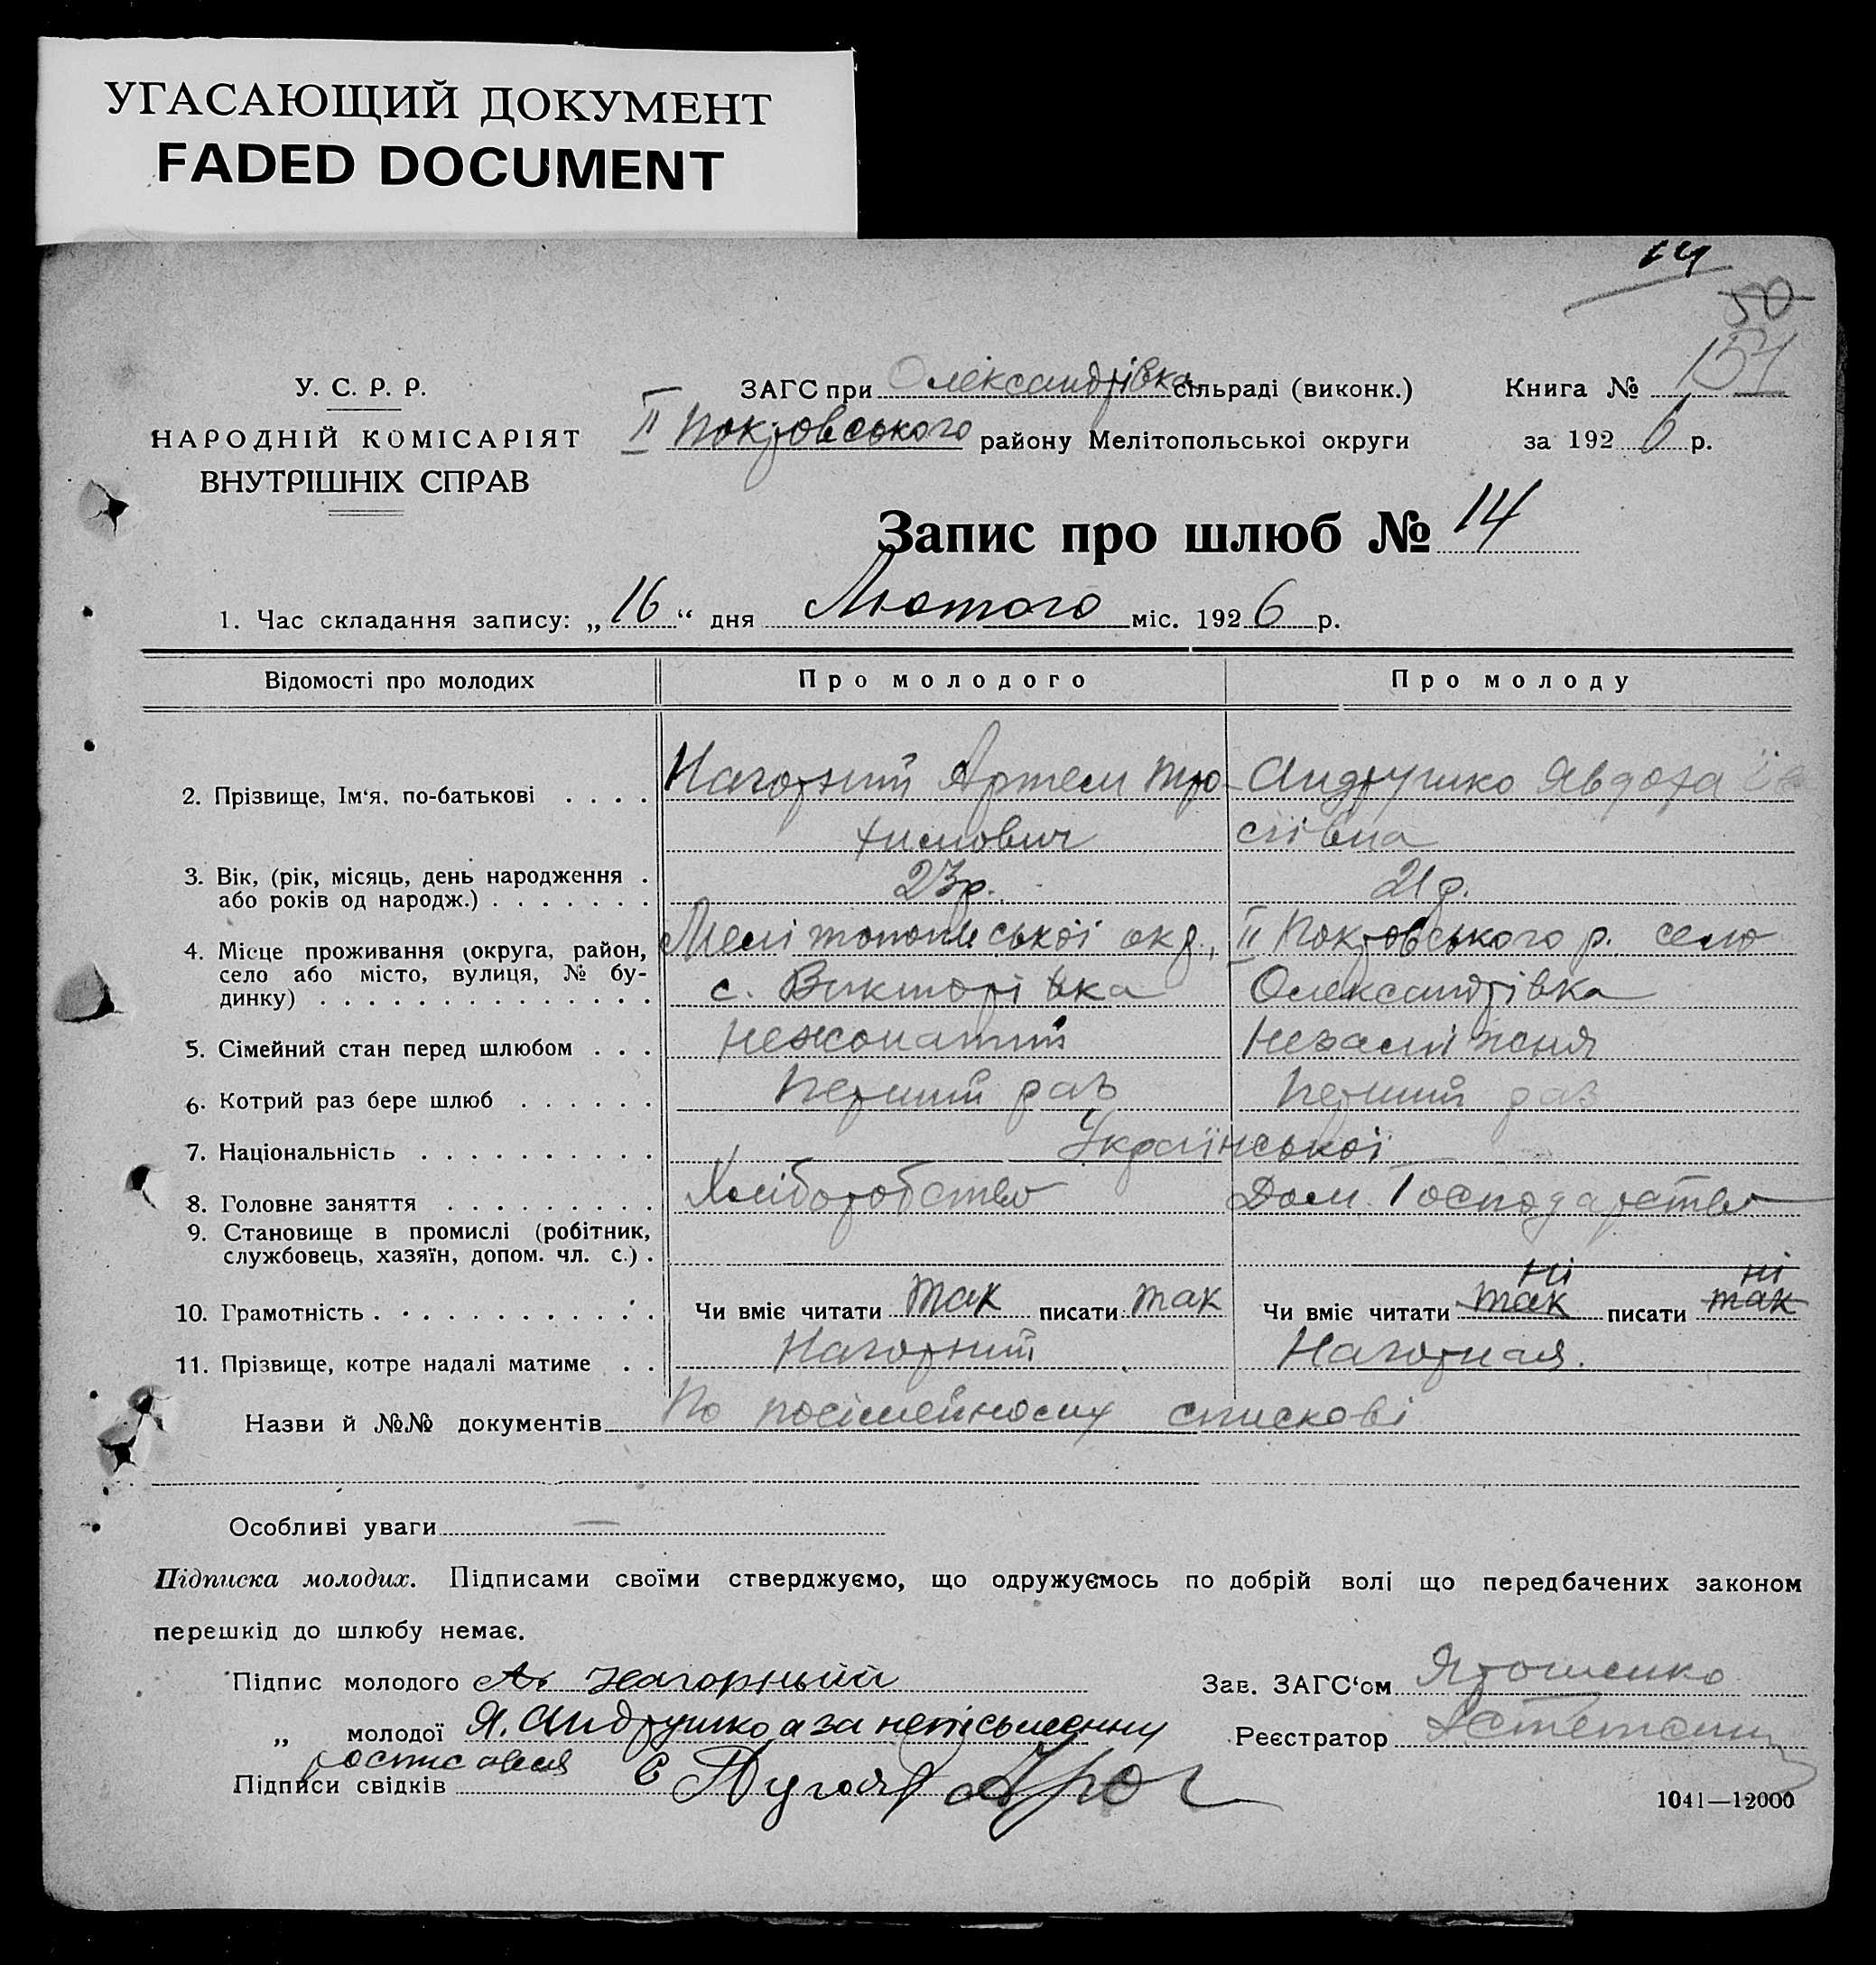 УГАСАЮЩИЙ ДОКУМЕНТ
FADED DOCUMENT
14
50
У. С. Р. Р.
НАРОДНІЙ КОМІСАРІЯТ
ВНУТРІШНІХ СПРАВ
ЗАГС при Олександрівка сільраді (виконк.)
Книга №
II Покровського району Мелітопольської округи
за 1926 р.
Запис про шлюб № 14
1. Час складання запису: „16“ дня Лютого міс. 1926 р.
Відомості про молодих
Про молодого
Про молоду
2. Прізвище, Ім‘я, по-батькові . . . .
Нагорний Артем Тро-
химович
Андрушко Явдоха
3. Вік, (рік, місяць, день народження .
або років од народж.) . . . . . . .
23р.
21р.
4. Місце проживання (округа, район,
село або місто, вулиця, № бу-
динку) . . . . . . . . . . . . . .
Мелітопольської окр.,
с. Викторівка
II Покровського р. село
Олександрівка
5. Сімейний стан перед шлюбом . . .
нежонатий
незаміжня
6. Котрий раз бере шлюб . . . . . .
перший раз
перший раз
7. Національність . . . . . . . . . .
Української
8. Головне заняття . . . . . . . . .
Хліборобство
Дом. Господарство
9. Становище в промислі (робітник,
службовець, хазяїн, допом. чл. с.) .
10. Грамотність . . . . . . . . . . . .
Чи вміє читати так писати так
ні ні
Чи вміє читати так писати так
11. Прізвище, котре надалі матиме . .
Нагорний
Нагорная.
Назви й №№ документів По посімейному спискові
Особливі уваги —
Підписка молодих. Підписами своїми стверджуємо, що одружуємось по добрій волі що передбачених законом
перешкід до шлюбу немає.
Підпис молодого Ар Нагорный
Зав. ЗАГС‘ом Ярошенко
„ молодої Я. Андрушко а за неписьменну
Реєстратор
росписався
Підписи свідків
1041—12000